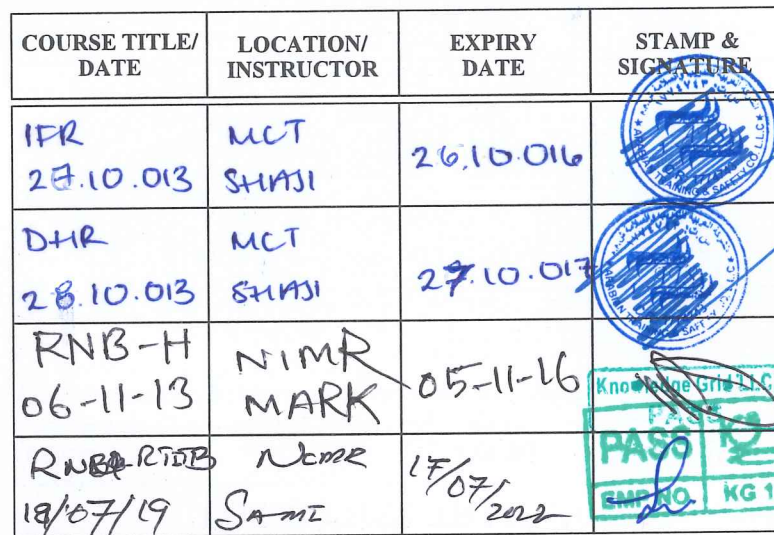 COURSE TITLE/ DATE
LOCATION/ INSTRUCTOR
EXPIRY DATE
STAMP & SIGNATURE
IFR
27.10.013
MCT
SHAJI
26.10.016
ARABIAN TRAINING & SAFETY CO. L.L.C
DHR
28.10.013
MCT
SHAJI
27.10.017
ARABIAN TRAINING & SAFETY CO. L.L.C
RNB-H
06-11-13
NIMR
MARK
05-11-16
Knowledge Grid L.L.C
PASS
18/07/19
SAMI
17/07/2022
PASS
EMP NO.
KG 1